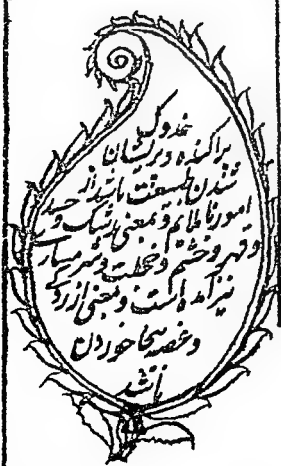 خدوک
پراکنده و پریشان
شدن طبیعت باشد از
امور ناملایم و بمعنی رشک و حسد
و قهر و خشم و خجلت و شرمساری
نیز آمده است و بمعنی آزرد
و غصه بیجا خوردن
باشد